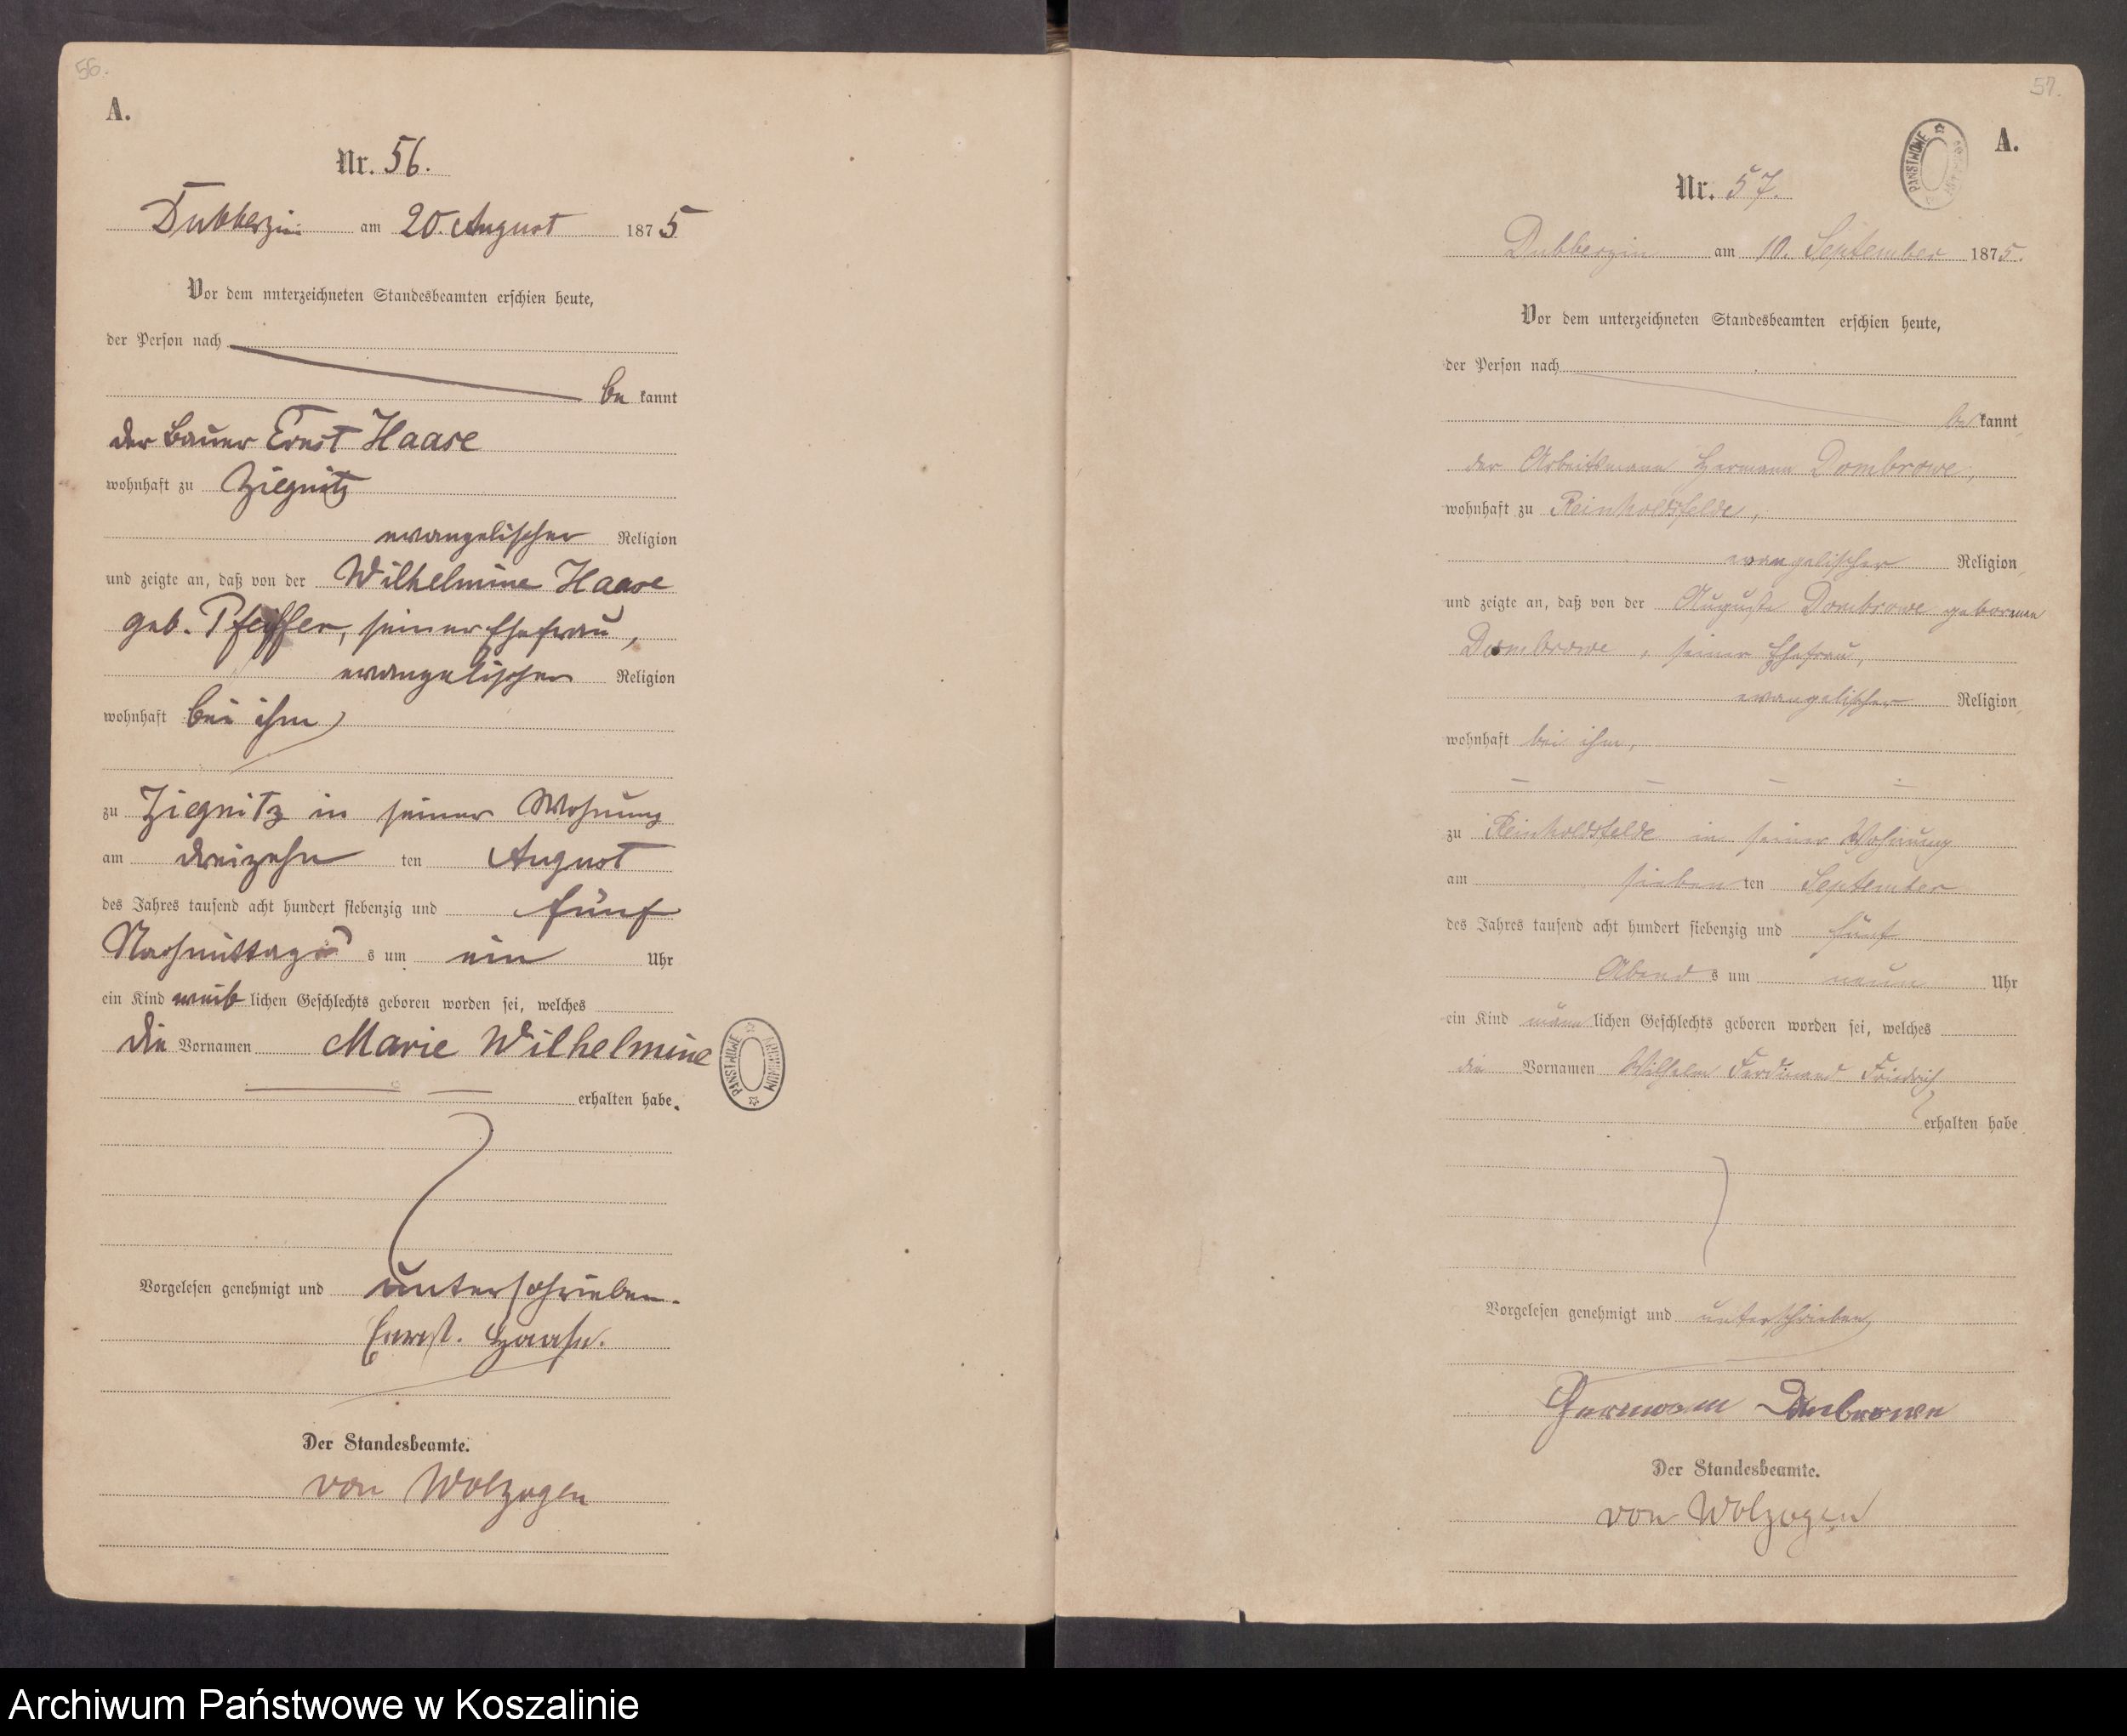 56.
A.
Nr. 56.
Dubberzin am 20. August 1875
Vor dem unterzeichneten Standesbeamten erschien heute,
der Person nach
be kannt
der Bauer Ernst Haase
wohnhaft zu Ziegnitz
evangelischer Religion
und zeigte an, daß von der Wilhelmine Haase
geb. Pfeiffer, seiner Ehefrau,
evangelischer Religion
wohnhaft bei ihm
zu Ziegnitz in seiner Wohnung
am dreizehn ten August
des Jahres tausend acht hundert siebenzig und fünf
Nachmittags s um ein Uhr
ein Kind weib lichen Geschlechts geboren worden sei, welches
die Vornamen Marie Wilhelmine
erhalten habe.
Vorgelesen genehmigt und unterschrieben.
Ernst. Haase.
Der Standesbeamte.
von Wolzogen
PAŃSTWOWE ARCHIWUM
57.
A.
PAŃSTWOWE
Nr. 57.
Dubberzin am 10. September 1875.
Vor dem unterzeichneten Standesbeamten erschien heute,
der Person nach
be kannt,
der Arbeitsmann Hermann Dombrowe,
wohnhaft zu Reinholdsfelde,
evangelischer Religion,
und zeigte an, daß von der Auguste Dombrowe geborenen
Dombrowe, seiner Ehefrau,
evangelischer Religion,
wohnhaft bei ihm,
zu Reinholdsfelde in seiner Wohnung
am sieben ten September
des Jahres tausend acht hundert siebenzig und fünf
Abend s um neun Uhr
ein Kind männ lichen Geschlechts geboren worden sei, welches
die Vornamen Wilhelm Ferdinand Friedrich
erhalten habe.
Vorgelesen genehmigt und unterschrieben
Hermann Dombrowe
Der Standesbeamte.
von Wolzogen
Archiwum Państwowe w Koszalinie